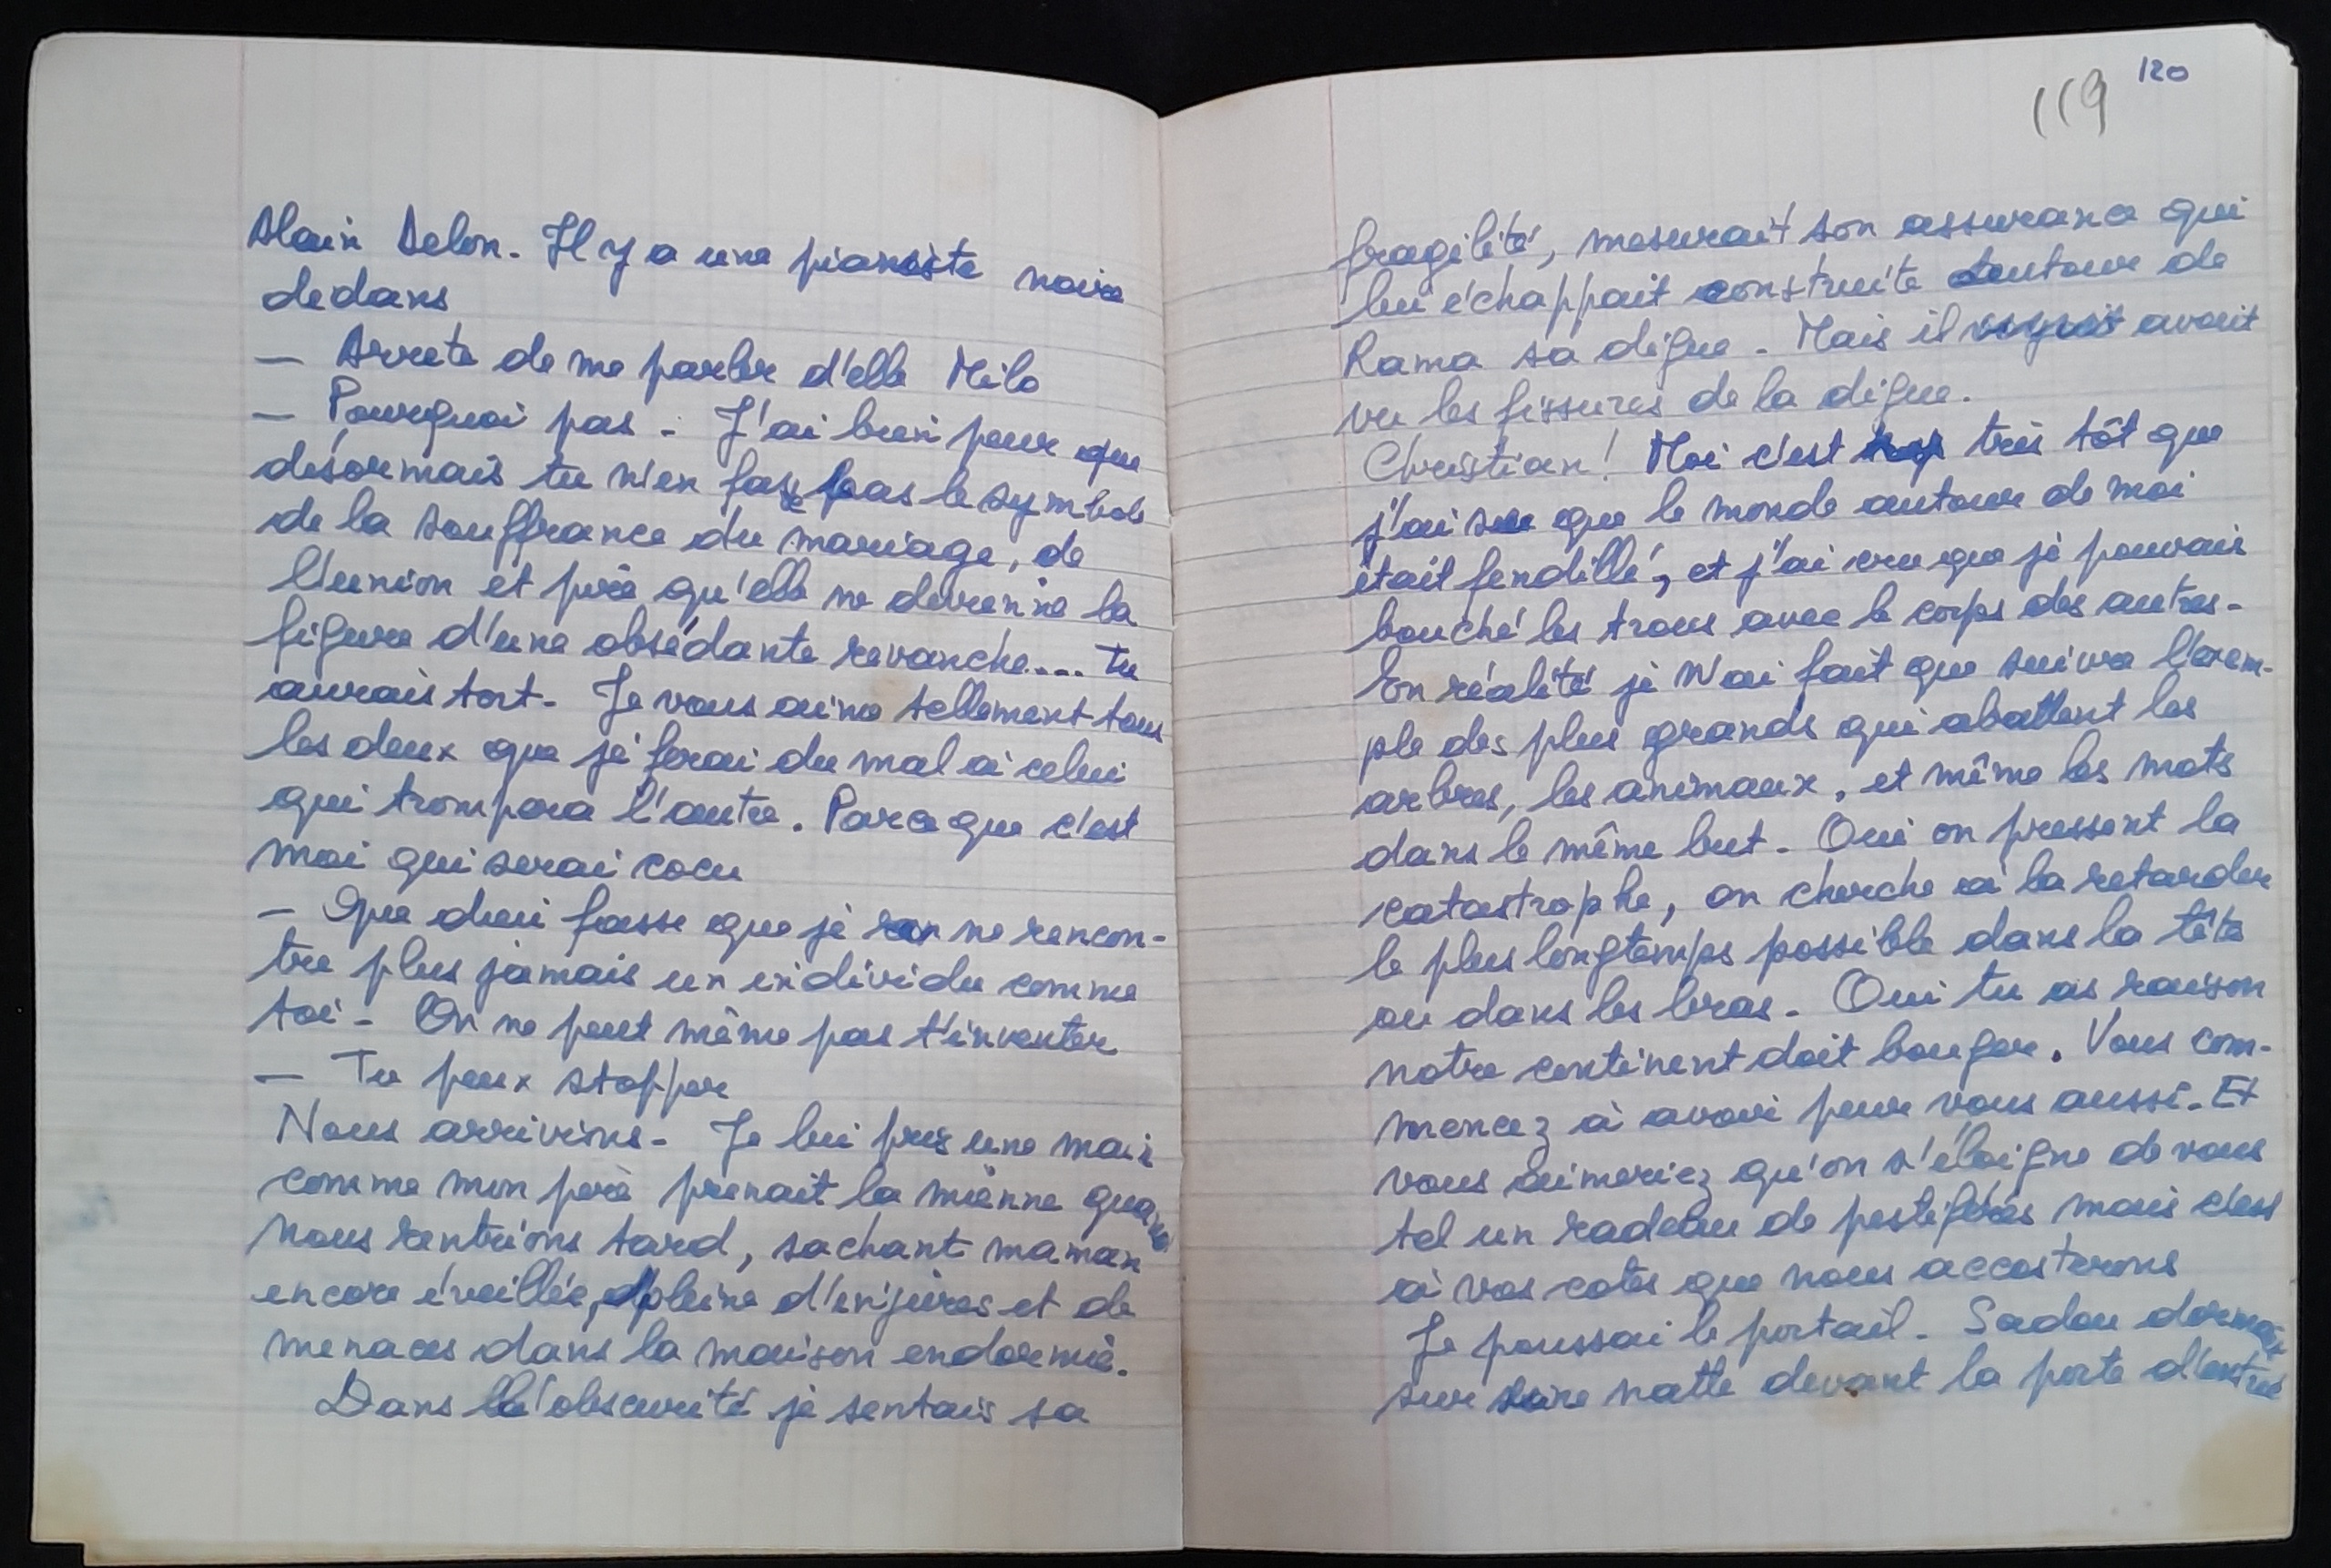 Alain Delon. Il y a une pianiste noire
dedans
— Arrete de me parler d'elle Milo
— Pourquoi pas. J'ai bien peur que
desormais tu n'en fasse pas le symbole
de la souffrance du mariage, de
l'union et pire qu'elle ne devienne la
figure d'une obsédante revanche.... Tu
aurais tort. Je vous aime tellement tous
les deux que je ferai du mal à celui
qui trompera l'autre. Parce que c'est
moi qui serai cocu
— Que dieu fasse que je ne rencon-
tre plus jamais un individu comme
toi. On ne peut même pas t'inventer
— Tu peux stopper
Nous arrivions. Je lui pris une main
comme mon père prenait la mienne quand
nous rentrions tard, sachant maman
encore éveillée, pleine d'injures et de
menaces dans la maison endormie.
Dans l'obscurité je sentais sa
119 120
fragilité, mesurait son assurance qui
lui échappait construite autour de
Rama sa digue. Mais il avait
vu les fissures de la digue.
Christian! Moi c'est très tôt que
j'ai su que le monde autour de moi
était fendillé, et j'ai cru que je pouvais
bouché les trous avec le corps des autres.
En réalité je n'ai fait que suivre l'exem-
ple des plus grands qui abattent les
arbres, les animaux, et même les mots
dans le même but. Oui on pressent la
catastrophe, on cherche à la retarder
le plus longtemps possible dans la tête
ou dans les bras. Oui tu as raison
notre continent doit bouger. Vous com-
mencez à avoir peur vous aussi. Et
vous aimeriez qu'on s'éloigne de vous
tel un radeau de pestiférés mais c'est
à vos cotés que nous accosterons
Je poussai le portail. Sadou dormait
sur une natte devant la porte d'entrée